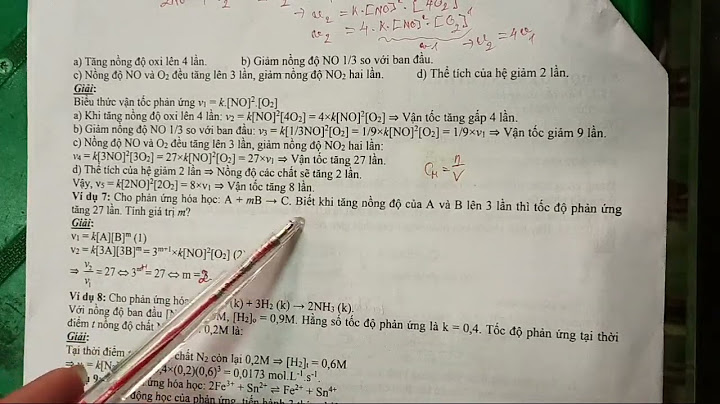 → v₂ = k.[NO]².[4O₂]¹
v₂ = 4.k.[NO]².[O₂]¹
v₁ → v₂ = 4v₁
a) Tăng nồng độ oxi lên 4 lần. b) Giảm nồng độ NO 1/3 so với ban đầu.
c) Nồng độ NO và O₂ đều tăng lên 3 lần, giảm nồng độ NO₂ hai lần. d) Thể tích của hệ giảm 2 lần.
Giải:
Biểu thức vận tốc phản ứng v₁ = k.[NO]².[O₂]
a) Khi tăng nồng độ oxi lên 4 lần: v₂ = k[NO]²[4O₂] = 4×k[NO]²[O₂] ⇒ Vận tốc tăng gấp 4 lần.
b) Giảm nồng độ NO 1/3 so với ban đầu: v₃ = k[1/3NO]²[O₂] = 1/9×k[NO]²[O₂] = 1/9×v₁ ⇒ Vận tốc giảm 9 lần.
c) Nồng độ NO và O₂ đều tăng lên 3 lần, giảm nồng độ NO₂ hai lần:
v₄ = k[3NO]²[3O₂] = 27×k[NO]²[O₂] = 27×v₁ ⇒ Vận tốc tăng 27 lần.
d) Thể tích của hệ giảm 2 lần ⇒ Nồng độ các chất sẽ tăng 2 lần.
C_M = n/V
Vậy, v₅ = k[2NO]²[2O₂] = 8×v₁ ⇒ Vận tốc tăng 8 lần.
Ví dụ 7: Cho phản ứng hóa học: A + mB → C. Biết khi tăng nồng độ của A và B lên 3 lần thì tốc độ phản ứng
tăng 27 lần. Tính giá trị m?
Giải:
v₁ = k[A][B]ᵐ (1)
v₂ = k[3A][3B]ᵐ = 3ᵐ⁺¹×k[NO]²[O₂] (2
⇒ v₂/v₁ = 27 ⇔ 3ᵐ⁺¹ = 27 ⇔ m = 2
Ví dụ 8: Cho phản ứng hó (k) + 3H₂ (k) → 2NH₃ (k).
Với nồng độ ban đầu [N M, [H₂]₀ = 0,9M. Hằng số tốc độ phản ứng là k = 0,4. Tốc độ phản ứng tại thời
điểm t nồng độ chất N 0,2M là:
Giải:
Tại thời điểm chất N₂ còn lại 0,2M ⇒ [H₂]t = 0,6M
⇒ v = k[N₂ ,4×(0,2)(0,6)³ = 0,0173 mol.L⁻¹.s⁻¹.
ứng hóa học: 2Fe³⁺ + Sn²⁺ ⇌ Fe²⁺ + Sn⁴⁺
động học của phản ứng, tiến hành